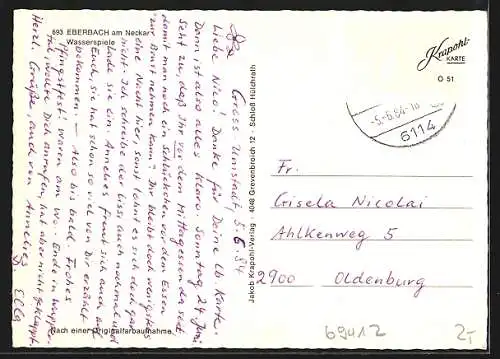 693 EBERBACH am Neckar
Wasserspiele
Gross Umstadt, 5.6.84
Liebe Nico! Danke für Deine lb. Karte.
Dann ist also alles klar. Sonntag, 24. Juni.
Seht zu, daß Ihr vor dem Mittagessen da seid,
damit man noch ein Schlückchen vor dem Essen
"zur Brust nehmen kann". Ihr bleibt doch wenigstens
eine Nacht hier, sonst lohnt es sich doch gar
nicht. Ich schreibe der Lissi auch nochmal und
lade sie ein. Annelies freut sich auch auf
Euch, sie hat schon so viel von Dir erzählt
bekommen. – Also bis bald. Frohes
Pfingstfest! Waren am W. Ende in
wollte Dich anrufen, hat aber nicht geklappt.
Herzl. Grüße, auch von Annelies
D. Ella
Nach einer Originalfarbaufnahme.
Jakob Krapohl-Verlag · 4048 Grevenbroich 12 · Schloß Hülchrath
Krapohl-
KARTE
O 51
-5.-6.84-18
6114
Fr.
Gisela Nicolai
Ahlkenweg 5
2900 Oldenburg
69412
2,-